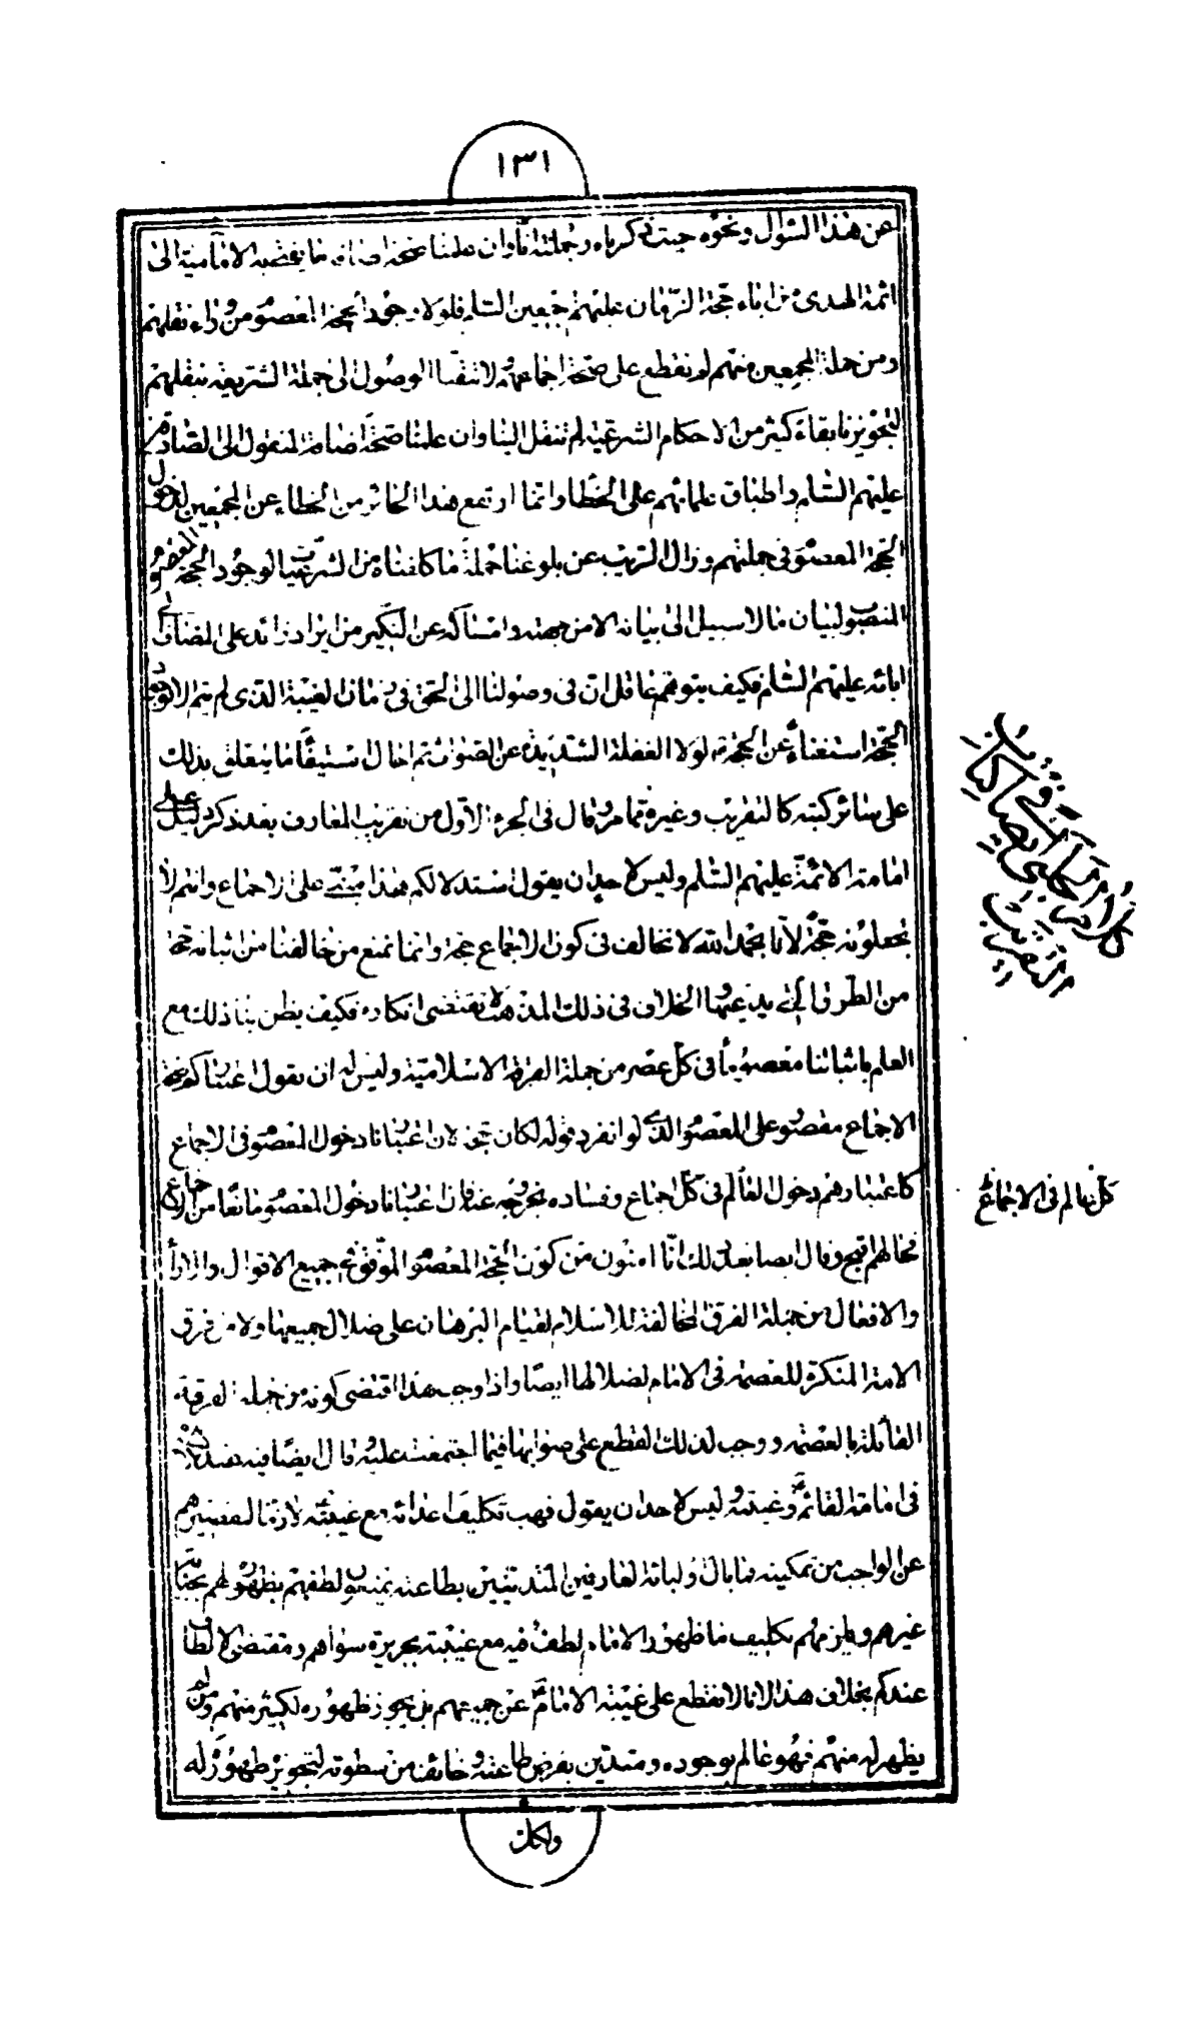 ١٣١
عن هذا السؤال ونحوه حيث ذكرناه وجملته انا وان علمنا صحة اضافة ما يقتضيه الامامية الى
ائمة الهدى من اباء حجة الزمان عليهم اجمعين السلم فلولا وجود الحجة المعصوم من وراء نقلهم
ومن جملة المجمعين منهم لم نقطع على صحة اجماعهم ولا تيقنا الوصول الى جملة الشريعة بنقلهم
لتجويزنا بقاء كثير من الاحكام الشرعية لم تنقل الينا وان علمنا صحة اضافة المنقول الى الصادقين
عليهم السلم واطباق علمائهم على الخطا وانما ارتفع هذا الجائز من الخطاء عن المجمعين لدخول
الحجة المعصوم في جملتهم وزال الريب عن بلوغنا جملة ما كلفناه من الشرعيات لوجود الحجة المعصوم
المنصوب لبيان ما لا سبيل الى بيانه الا من جهته وامساكه عن النكير من ايراد زائد على المضاف الى
ابائه عليهم السلم فكيف يتوهم عاقل ان في وصولنا الى الحق في زمان الغيبة الذي لم يتم الا بوجود
الحجة استغناء عن الحجة لولا الغفلة الشديدة عن الصواب ثم احال استيفاء ما يتعلق بذلك
على سائر كتبه كالتقريب وغيره مما مر وقال في الجزء الاول من تقريب المعارف بعد ذكر دليل على
امامة الائمة عليهم السلم وليس لاحد ان يقول استدلالكم هذا مبني على الاجماع وانتم لا
تجعلونه حجة لانا بحمد الله لا نخالف في كون الاجماع حجة وانما نمنع من خالفنا من اثباته حجة
من الطرق التي يدعيها والخلاف في ذلك المذهب لا يقتضي انكاره فكيف يظن بنا ذلك مع
العلم باثباتنا معصوما في كل عصر من جملة الفرقة الاسلامية وليس له ان يقول اعتباركم صحة
الاجماع مقصور على المعصوم الذي لو انفرد قوله لكان حجة لان اعتبارنا دخول المعصوم في الاجماع
كاعتبارهم دخول العالم في كل اجماع وفساده بخروجه عنه فان اعتبارنا دخول المعصوم مانعا من الاجماع
فحالهم اقبح وقال ايضا بعد ذلك انا امنون من كون الحجة المعصوم الموفق في جميع الاقوال والاراء
والافعال من جملة الفرق المخالفة للاسلام لقيام البرهان على ضلال جميعها ولا من فرق
الامة المنكرة للعصمة في الامام لضلالها ايضا واذا وجب هذا اقتضى كونه من جملة الفرقة
القائلة بالعصمة ووجب لذلك القطع على صوابها فيما اجتمعت عليه وقال ايضا فيه بعد
في امامة القائم وغيبته وليس لاحد ان يقول فهب تكليف اعدائه مع غيبته لازما لتقصيرهم
عن الواجب من تمكينه ما بال اوليائه العارفين المتدينين بطاعته يمنعون لطفهم بظهوره لهم بجناية
غيرهم ويلزمهم تكليف ما ظهور الامام لطف فيه مع غيبته بجريرة سواهم ومقتضى الالطاف
عندكم بخلاف هذا لانا لا نقطع على غيبة الامام عن جميعهم بل نجوز ظهوره لكثير منهم ومن لم
يظهر له منهم فهو عالم بوجوده ومتدين بفرض طاعته وخائف من سطوته لتجويز ظهوره له
ولكل
كلام الحلبي ايضا في كتاب
التقريب
كل عالم في الاجماع